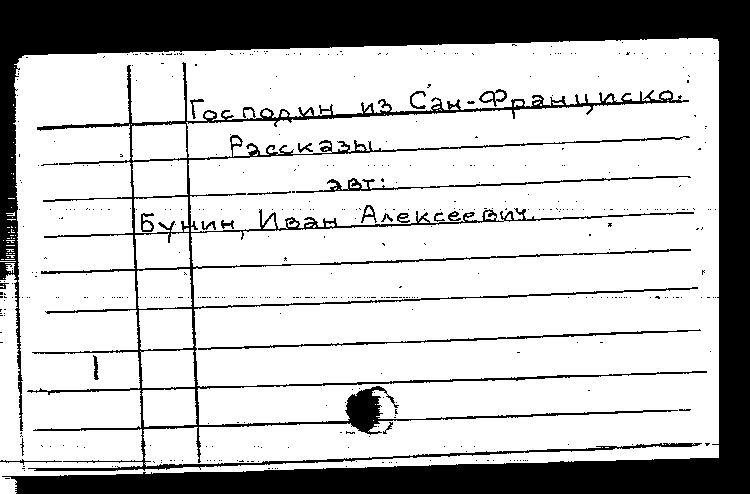 Господин из Сан-Франциско.
Рассказы.
авт:
Бунин, Иван Алексеевич.